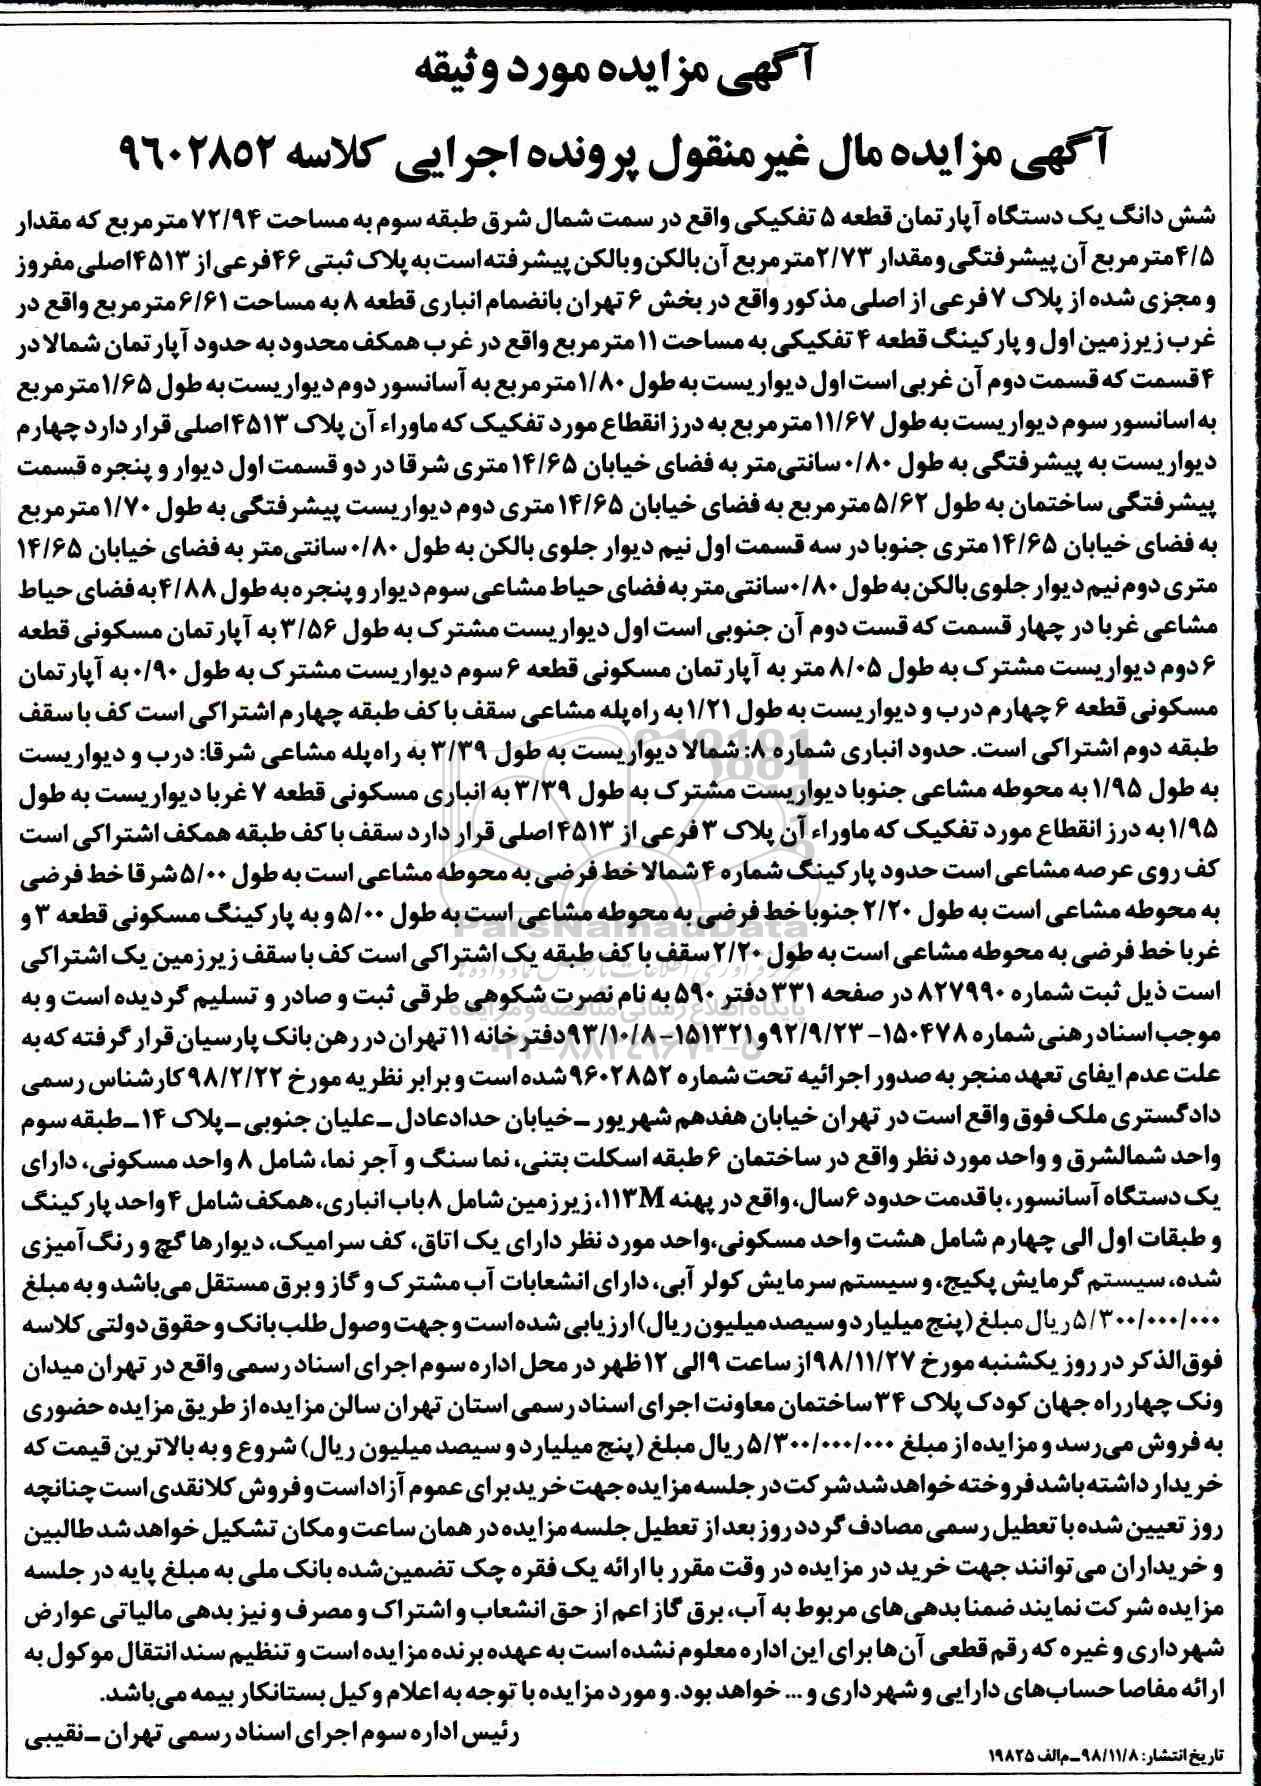 آگهی مزایده مورد وثیقه
آگهی مزایده مال غیرمنقول پرونده اجرایی کلاسه ۹۶۰۲۸۵۲
شش دانگ یک دستگاه آپارتمان قطعه ۵ تفکیکی واقع در سمت شمال شرق طبقه سوم به مساحت ۷۲/۹۴ مترمربع که مقدار
۴/۵ مترمربع آن پیشرفتگی و مقدار ۲/۷۳ مترمربع آن بالکن و بالکن پیشرفته است به پلاک ثبتی ۴۶ فرعی از ۴۵۱۳ اصلی مفروز
و مجزی شده از پلاک ۷ فرعی از اصلی مذکور واقع در بخش ۶ تهران بانضمام انباری قطعه ۸ به مساحت ۶/۶۱ مترمربع واقع در
غرب زیرزمین اول و پارکینگ قطعه ۴ تفکیکی به مساحت ۱۱ مترمربع واقع در غرب همکف محدود به حدود آپارتمان شمالا در
۴ قسمت که قسمت دوم آن غربی است اول دیواریست به طول ۱/۸۰ مترمربع به آسانسور دوم دیواریست به طول ۱/۶۵ مترمربع
به اسانسور سوم دیواریست به طول ۱۱/۶۷ مترمربع به درز انقطاع مورد تفکیک که ماوراء آن پلاک ۴۵۱۳ اصلی قرار دارد چهارم
دیواریست به پیشرفتگی به طول ۰/۸۰ سانتی‌متر به فضای خیابان ۱۴/۶۵ متری شرقا در دو قسمت اول دیوار و پنجره قسمت
پیشرفتگی ساختمان به طول ۵/۶۲ مترمربع به فضای خیابان ۱۴/۶۵ متری دوم دیواریست پیشرفتگی به طول ۱/۷۰ مترمربع
به فضای خیابان ۱۴/۶۵ متری جنوبا در سه قسمت اول نیم دیوار جلوی بالکن به طول ۰/۸۰ سانتی‌متر به فضای خیابان ۱۴/۶۵
متری دوم نیم دیوار جلوی بالکن به طول ۰/۸۰ سانتی‌متر به فضای حیاط مشاعی سوم دیوار و پنجره به طول ۴/۸۸ به فضای حیاط
مشاعی غربا در چهار قسمت که قست دوم آن جنوبی است اول دیواریست مشترک به طول ۳/۵۶ به آپارتمان مسکونی قطعه
۶ دوم دیواریست مشترک به طول ۸/۰۵ متر به آپارتمان مسکونی قطعه ۶ سوم دیواریست مشترک به طول ۰/۹۰ به آپارتمان
مسکونی قطعه ۶ چهارم درب و دیواریست به طول ۱/۲۱ به راه پله مشاعی سقف با کف طبقه چهارم اشتراکی است کف با سقف
طبقه دوم اشتراکی است. حدود انباری شماره ۸: شمالا دیواریست به طول ۳/۳۹ به راه پله مشاعی شرقا: درب و دیواریست
به طول ۱/۹۵ به محوطه مشاعی جنوبا دیواریست مشترک به طول ۳/۳۹ به انباری مسکونی قطعه ۷ غربا دیواریست به طول
۱/۹۵ به درز انقطاع مورد تفکیک که ماوراء آن پلاک ۳ فرعی از ۴۵۱۳ اصلی قرار دارد سقف با کف طبقه همکف اشتراکی است
کف روی عرصه مشاعی است حدود پارکینگ شماره ۴ شمالا خط فرضی به محوطه مشاعی است به طول ۵/۰۰ شرقا خط فرضی
به محوطه مشاعی است به طول ۲/۲۰ جنوبا خط فرضی به محوطه مشاعی است به طول ۵/۰۰ و به پارکینگ مسکونی قطعه ۳ و
غربا خط فرضی به محوطه مشاعی است به طول ۲/۲۰ سقف با کف طبقه یک اشتراکی است کف با سقف زیرزمین یک اشتراکی
است ذیل ثبت شماره ۸۲۷۹۹۰ در صفحه ۳۳۱ دفتر ۵۹۰ به نام نصرت شکوهی طرقی ثبت و صادر و تسلیم گردیده است و به
موجب اسناد رهنی شماره ۱۵۰۴۷۸ - ۹۲/۹/۲۳ و ۱۵۱۳۲۱ - ۹۳/۱۰/۸ دفترخانه ۱۱ تهران در رهن بانک پارسیان قرار گرفته که به
علت عدم ایفای تعهد منجر به صدور اجرائیه تحت شماره ۹۶۰۲۸۵۲ شده است و برابر نظریه مورخ ۹۸/۲/۲۲ کارشناس رسمی
دادگستری ملک فوق واقع است در تهران خیابان هفدهم شهریور ـ خیابان حدادعادل ـ علیان جنوبی ـ پلاک ۱۴ ـ طبقه سوم
واحد شمالشرق و واحد مورد نظر واقع در ساختمان ۶ طبقه اسکلت بتنی، نما سنگ و آجر نما، شامل ۸ واحد مسکونی، دارای
یک دستگاه آسانسور، با قدمت حدود ۶ سال، واقع در پهنه ۱۱۳M، زیرزمین شامل ۸ باب انباری، همکف شامل ۴ واحد پارکینگ
و طبقات اول الی چهارم شامل هشت واحد مسکونی، واحد مورد نظر دارای یک اتاق، کف سرامیک، دیوارها گچ و رنگ آمیزی
شده، سیستم گرمایش پکیج، و سیستم سرمایش کولر آبی، دارای انشعابات آب مشترک و گاز و برق مستقل می‌باشد و به مبلغ
۵/۳۰۰/۰۰۰/۰۰۰ ریال مبلغ (پنج میلیارد و سیصد میلیون ریال) ارزیابی شده است و جهت وصول طلب بانک و حقوق دولتی کلاسه
فوق‌الذکر در روز یکشنبه مورخ ۹۸/۱۱/۲۷ از ساعت ۹ الی ۱۲ ظهر در محل اداره سوم اجرای اسناد رسمی واقع در تهران میدان
ونک چهارراه جهان کودک پلاک ۳۴ ساختمان معاونت اجرای اسناد رسمی استان تهران سالن مزایده از طریق مزایده حضوری
به فروش می‌رسد و مزایده از مبلغ ۵/۳۰۰/۰۰۰/۰۰۰ ریال مبلغ (پنج میلیارد و سیصد میلیون ریال) شروع و به بالاترین قیمت که
خریدار داشته باشد فروخته خواهد شد شرکت در جلسه مزایده جهت خرید برای عموم آزاد است و فروش کلا نقدی است چنانچه
روز تعیین شده با تعطیل رسمی مصادف گردد روز بعد از تعطیل جلسه مزایده در همان ساعت و مکان تشکیل خواهد شد طالبین
و خریداران می‌توانند جهت خرید در مزایده در وقت مقرر با ارائه یک فقره چک تضمین شده بانک ملی به مبلغ پایه در جلسه
مزایده شرکت نمایند ضمنا بدهی‌های مربوط به آب، برق گاز اعم از حق انشعاب و اشتراک و مصرف و نیز بدهی مالیاتی عوارض
شهرداری و غیره که رقم قطعی آن‌ها برای این اداره معلوم نشده است به عهده برنده مزایده است و تنظیم سند انتقال موکول به
ارائه مفاصا حساب‌های دارایی و شهرداری و ... خواهد بود. و مورد مزایده با توجه به اعلام وکیل بستانکار بیمه می‌باشد.
رئیس اداره سوم اجرای اسناد رسمی تهران ـ نقیبی
تاریخ انتشار: ۹۸/۱۱/۸ ـ م‌الف ۱۹۸۲۵
ParsNamadData
پایگاه اطلاع رسانی مناقصه و مزایده
۰۲۱-۸۸۳۴۹۶۷۰-۵